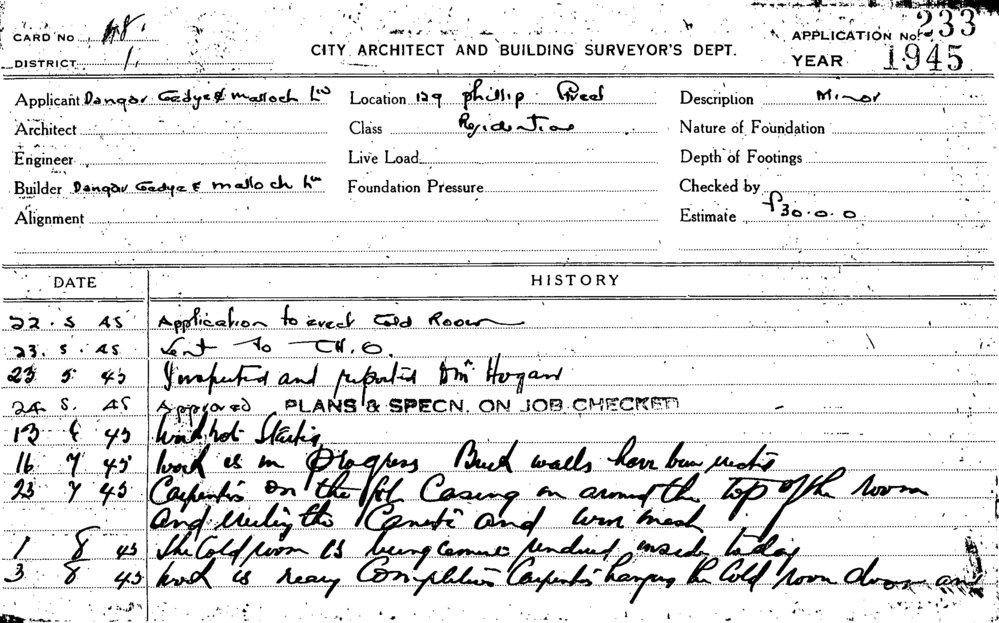 CARD No 48.
DISTRICT 1.
CITY ARCHITECT AND BUILDING SURVEYOR'S DEPT.
APPLICATION No. 233
YEAR 1945
Applicant Dangar Gedye & Malloch Ltd
Location 129 Phillip Street
Description Minor
Architect
Class Residential
Nature of Foundation
Engineer
Live Load
Depth of Footings
Builder Dangar Gedye & Malloch Ltd
Foundation Pressure
Checked by
Alignment
Estimate £30.0.0
DATE HISTORY
22. 5 45 Application to erect Cold Room
23. 5. 45 Sent To C.H.O.
23 5 45 I inspected and reported Hogan
24 5. 45 Approved PLANS & SPECN. ON JOB CHECKED
13 6 45 Work not Started
16 7 45 Work is in Progress Brick walls have been
23 7 45 Carpenters on the Job Casing on around the top of the room
and the and wire mesh
1 8 45 The Cold room is being cement rendered inside today
3 8 45 Work is near Completion Carpenters hanging the Cold room door and